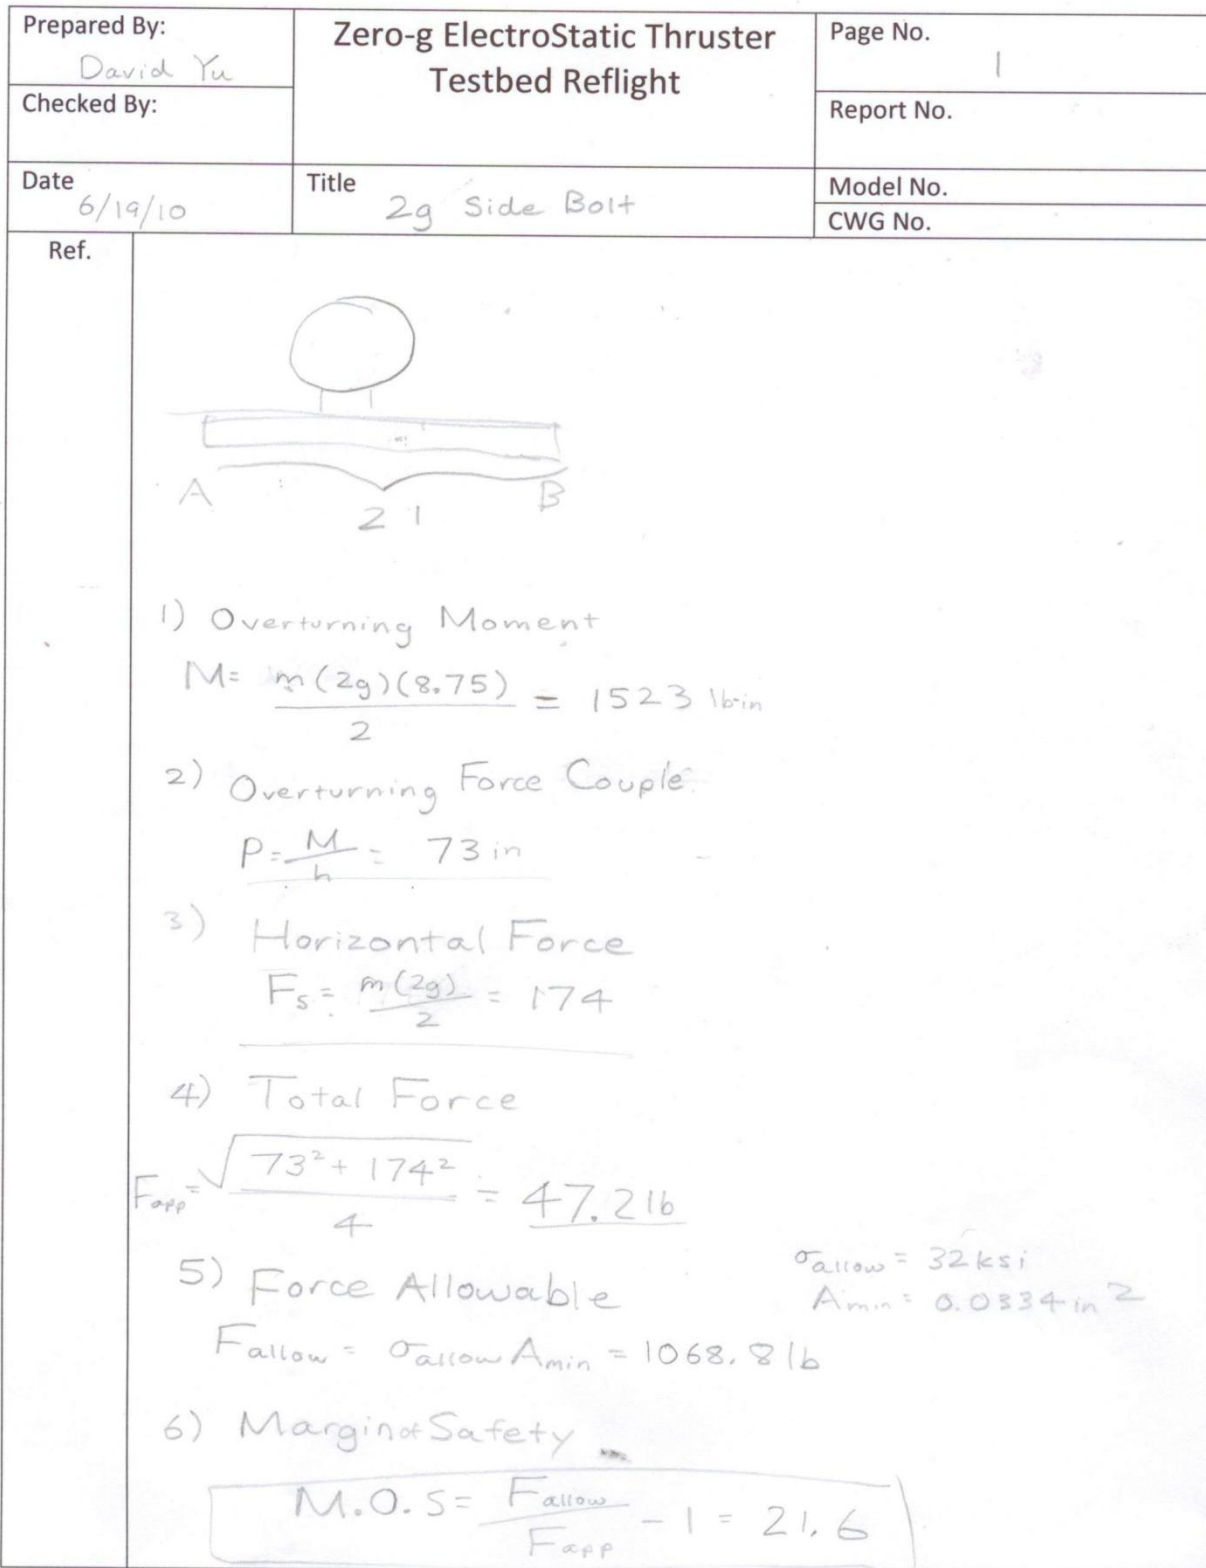 Prepared By:
David Yu
Zero-g ElectroStatic Thruster
Testbed Reflight
Page No.
1
Checked By:
Report No.
Date
6/19/10
Title
2g Side Bolt
Model No.
CWG No.
Ref.
A
B
21
1) Overturning Moment
M= m(2g)(8.75) / 2 = 1523 lb·in
2) Overturning Force Couple
P= M/h = 73 in
3) Horizontal Force
Fs= m(2g)/2 = 174
4) Total Force
Fapp= √73² + 174² / 4 = 47.2 lb
5) Force Allowable
σallow = 32 ksi
Amin= 0.0334 in²
Fallow= σallow Amin = 1068.8 lb
6) Margin of Safety
M.O.S= Fallow/Fapp - 1 = 21.6